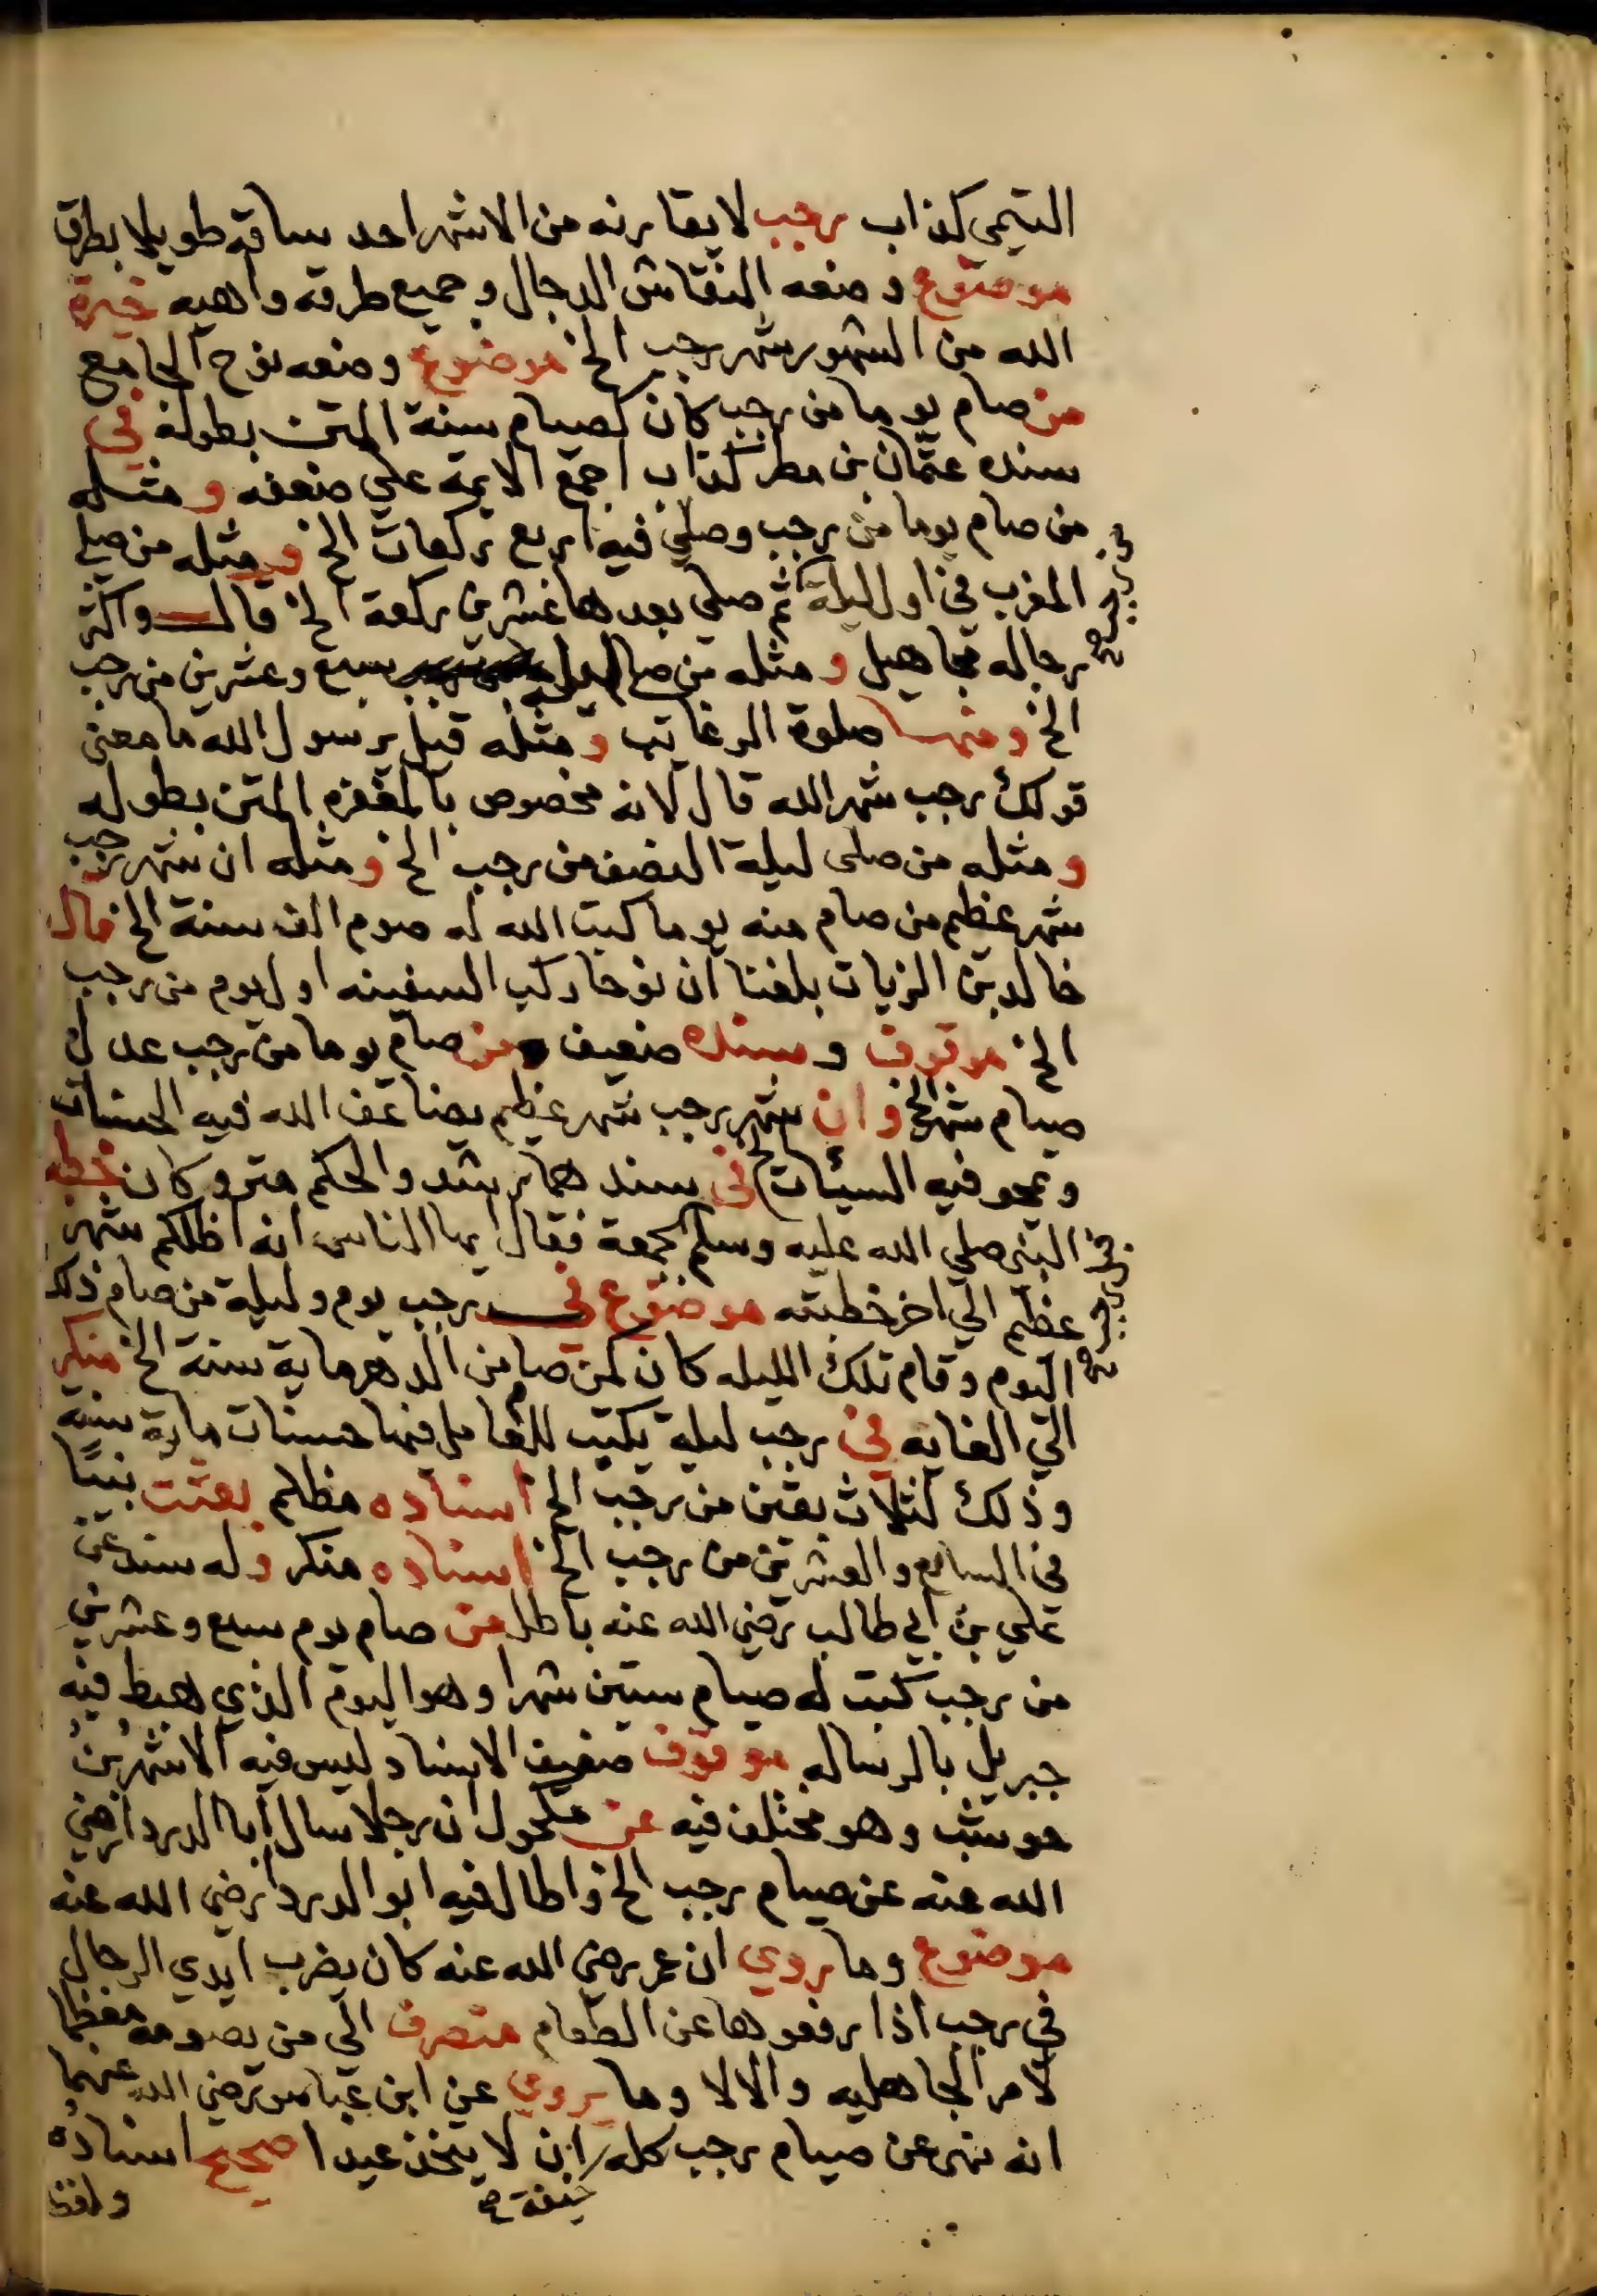 التيمي كذاب رجب لا يقارنه من الاشهر احد ساقه طويلا بطرق
موضوع وضعه النقاش الدجال وجميع طرقه واهيه خيرة
الله من الشهور شهر رجب الخ موضوع وضعه نوح الجامع
من صام يوما من رجب كان كصيام سنة المتن بطوله في
سنده عثمان بن مطر كذاب اجمع الايمة علي ضعفه ومثله
من صام يوما من رجب وصلي فيه اربع ركعات الخ ومثله من صلي
المغرب في اول ليلة ثم صلي بعدها عشرين ركعة الخ قال واكثر
رجاله مجاهيل ومثله من صام سبع وعشرين من رجب
الخ ومنها صلوة الرغايب ومثله قيل يرسول الله ما معني
قولك رجب شهر الله قال لانه مخصوص بالمغفره المتن بطوله
ومثله من صلى ليلة النصف من رجب الخ ومثله ان شهر رجب
شهر عظيم من صام منه يوما كتب الله له صوم الف سنة الخ قال
خالد بن الزيات بلغنا ان نوحا ركب السفينه اول يوم من رجب
الخ موقوف وسنده ضعيف من صام يوما من رجب عدل
صيام شهر الخ وان شهر رجب شهر عظيم يضاعف الله فيه الحسنات
ويمحو فيه السيئات الخ في سندهما رشد والحكم متروكان خطبه
النبي صلي الله عليه وسلم بجمعة فقال ايها الناس انه اظلكم شهر
عظيم الي اخر خطبته موضوع في رجب يوم وليلة من صام ذلك
اليوم وقام تلك الليله كان كمن صام من الدهر ماية سنة الخ منكر
الي الغايه في رجب ليلة يكتب للعامل فيها حسنات ماية سنة
وذلك لثلاث بقين من رجب الخ اسناده مظلم بعثت نبيا
في السابع والعشرين من رجب الخ اسناده منكر وله سند عن
علي بن ابي طالب رضي الله عنه باطل من صام يوم سبع وعشرين
من رجب كتب له صيام ستين شهرا وهو اليوم الذي هبط فيه
جبريل بالرساله موقوف ضعيف الاسناد ليس فيه الا شهر بن
حوشب وهو مختلف فيه عن مكحول ان رجلا سال ابا الدردا رضي
الله عنه عن صيام رجب الخ واطال فيه ابو الدردا رضي الله عنه
موضوع وما روي ان عمر رضي الله عنه كان يضرب ايدي الرجال
في رجب اذا رفعوها عن الطعام متصرف الي من يصومه معظما
لامر الجاهليه والا لا وما يروي عن ابن عباس رضي الله عنهما
انه نهي عن صيام رجب كله ان لا يتخذ عيدا صحيح اسناده
خيفة
ولفظ